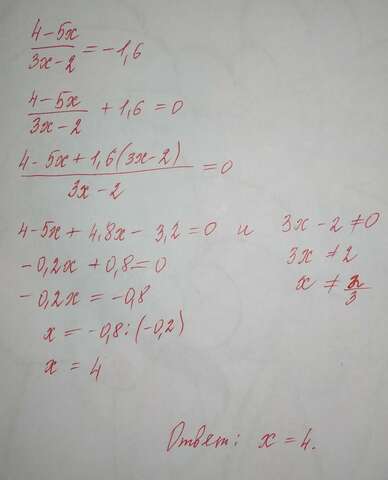 (4-5x)/(3x-2) = -1,6
(4-5x)/(3x-2) + 1,6 = 0
(4-5x+1,6(3x-2))/(3x-2) = 0
4-5x+4,8x-3,2=0 и 3x-2≠0
-0,2x+0,8=0 3x≠2
-0,2x=-0,8 x≠2/3
x=-0,8:(-0,2)
x=4
Ответ: x=4.